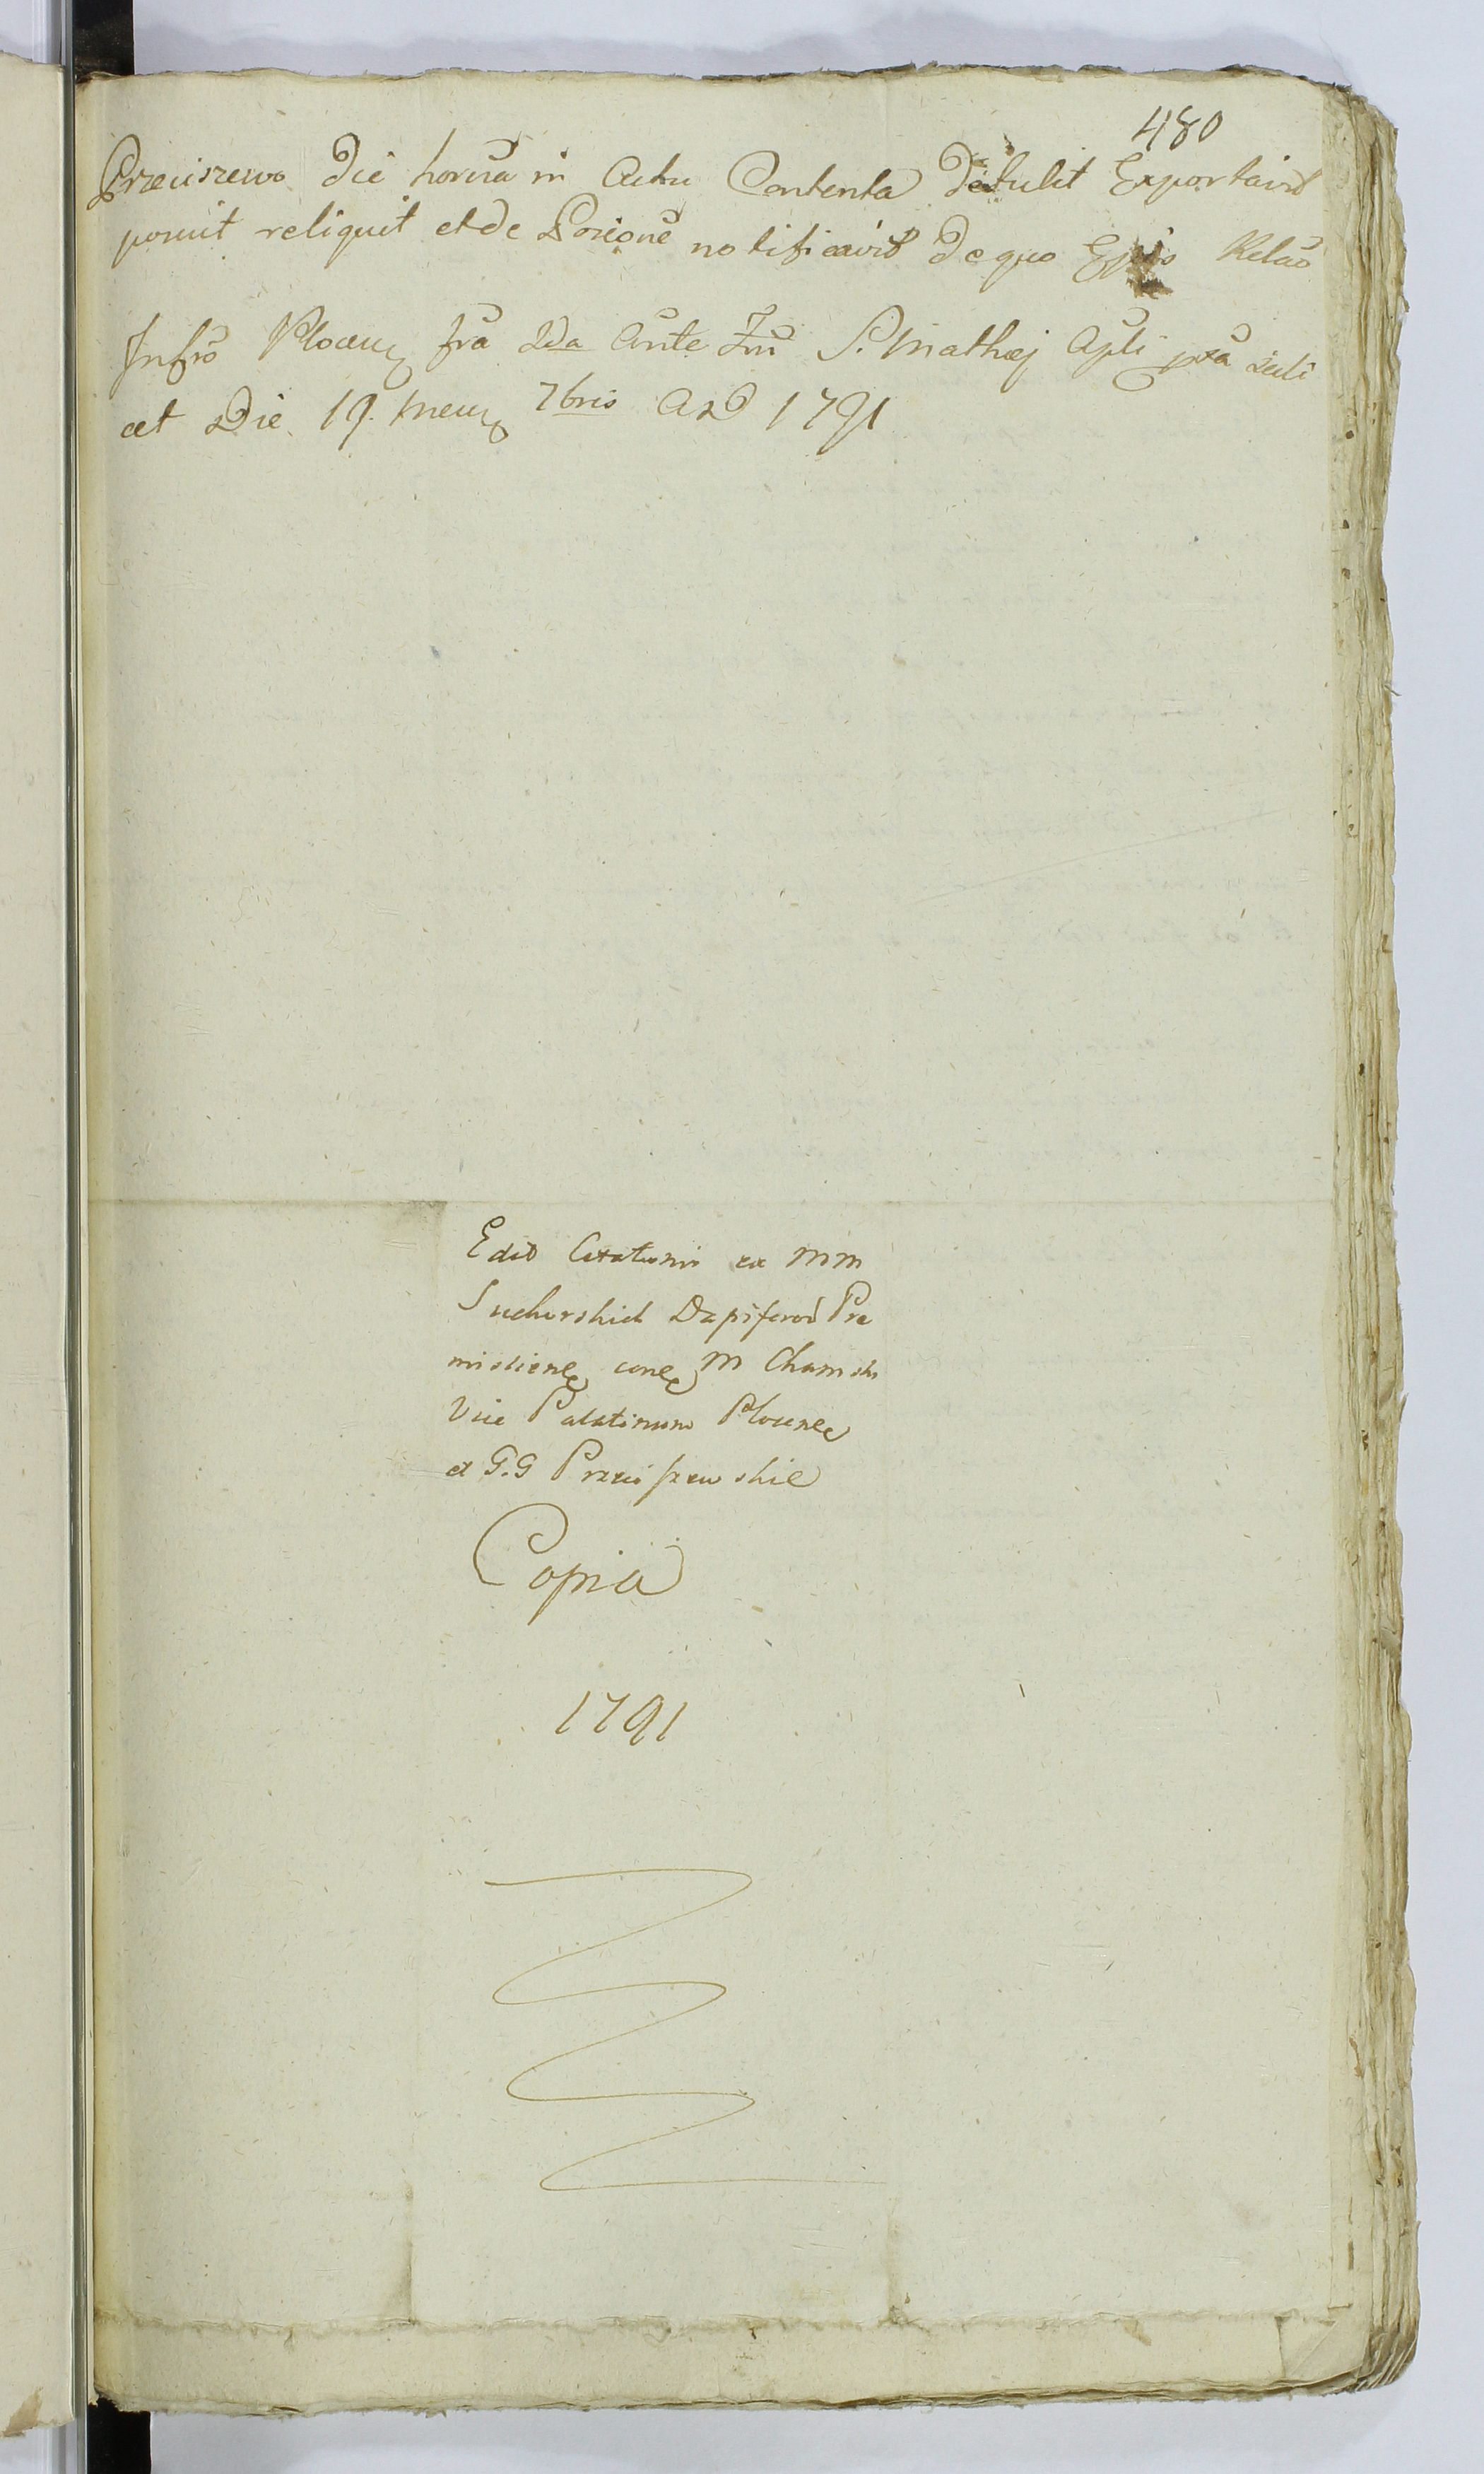 480
Przeciszewo Die horna in Actu Contenta Detulit Exportavit
posuit reliquit et de Posicone notificavit de quo Relao
Plocen fra 2da Ante S. Mathej Apli
et Die 19. Mens 7bris AD 1791
Edit Citationis ex MM
Sucherskich Dapiferor Pre
misliens cone M Chamski
Vice Palatinum Plocene
et G.G Przeciszewskie
Copia
1791